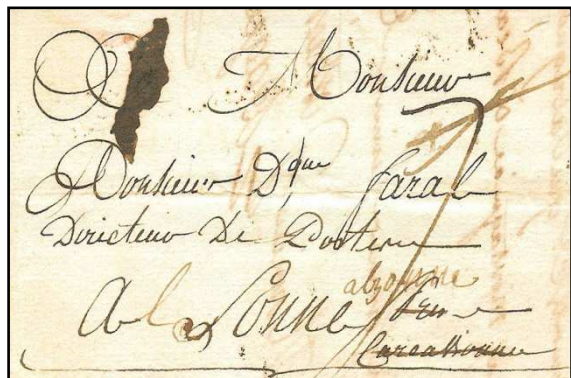 Monsieur
Monsieur D.que faral
Directeur De Posteru
alzonne
A la Sonne
Carcassonne